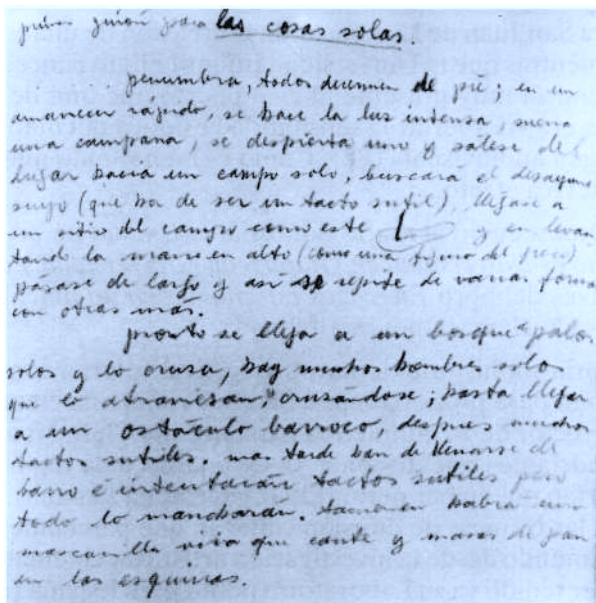 guión para las cosas solas.
penumbra, todos duermen de pie; en un
amanecer rápido, se hace la luz intensa, suena
una campana, se despierta uno y sálese del
lugar hacia un campo solo, buscará el desayuno
suyo (que ha de ser un tacto sutil), llégase a
un sitio del campo como este y en levan
tando la mano en alto (como una figura del greco)
pásase de largo y así se repite de varias forma
con otras más.
pronto se llega a un bosque "palos
solos y lo crusa, hay muchos hombres solos
que lo atraviesan," crusándose; hasta llegar
a un ostáculo barroco, despues muchos
tactos sutiles. mas tarde han de llenarse de
barro e intentarán tactos sutiles pero
todo lo mancharán. tamien habrá una
mascarilla viva que cante y masas de pan
en las esquinas.